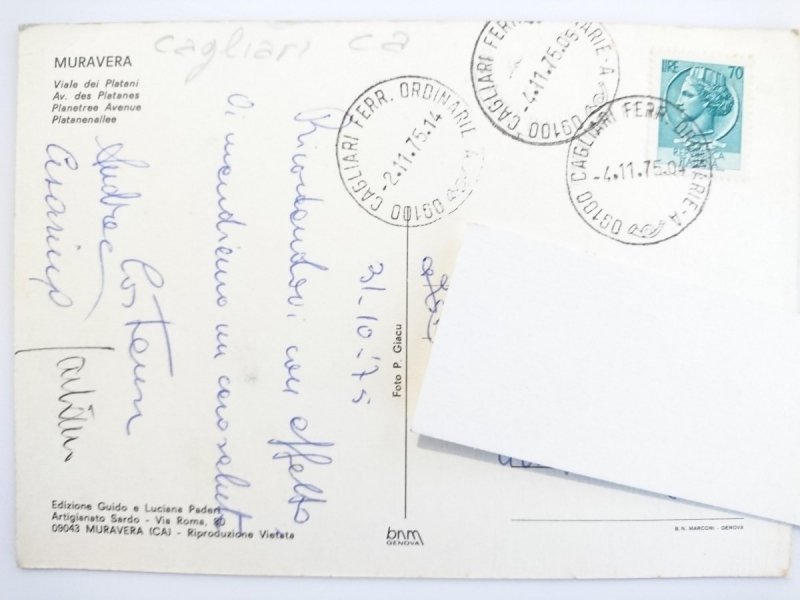 cagliari ca
MURAVERA
Viale dei Platani
Av. des Platanes
Planetree Avenue
Platanenallee
09100 CAGLIARI FERR. ORDINARIE-A
-2.11.75.14
09100 CAGLIARI FERR. ORDINARIE-A
-4.11.75.05
09100 CAGLIARI FERR. ORDINARIE-A
-4.11.75.04
LIRE 70
31-10-'75
Ricordandovi con affetto
Vi mandiamo un caro saluto
Foto P. Giacu
Edizione Guido e Luciana Paderi
Artigianato Sardo - Via Roma, 80
09043 MURAVERA (CA) - Riproduzione Vietata
bnm
GENOVA
B.N. MARCONI - GENOVA